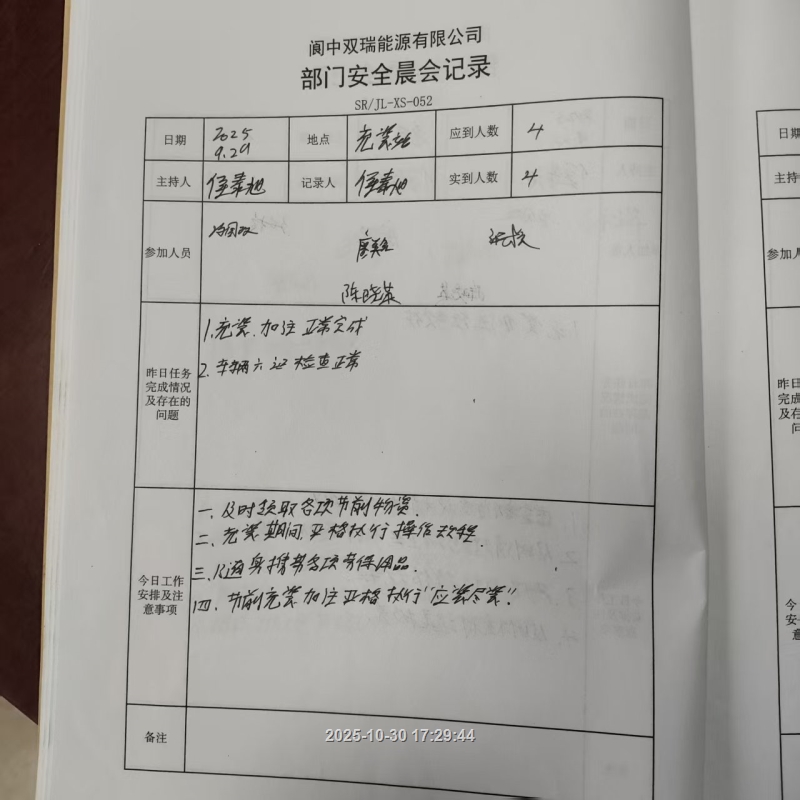 阆中双瑞能源有限公司
部门安全晨会记录
SR/JL-XS-052
日期 2025 9.29 地点 充装站 应到人数 4
主持人 记录人 实到人数 4
参加人员
陈晓蓉
昨日任务完成情况及存在的问题
1.充装.加注正常完成
2.车辆六证检查正常
今日工作安排及注意事项
一、及时领取各项节前物资.
二、充装期间,严格执行操作规程.
三、随身携带各项劳保用品.
四、节前充装加注严格执行"应装尽装"!
备注
2025-10-30 17:29:44
日期
主持
参加人
今
安
意